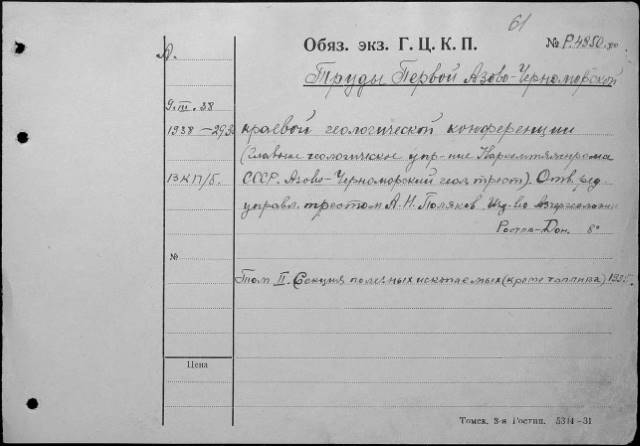 61
А.
Обяз. экз. Г. Ц. К. П. № Р.4850
Труды Первой Азово-Черноморской
9.III.38
1938 – 293 краевой геологической конференции
(Главное геологическое упр-ние Наркомтяжпрома
13КП/Б. СССР. Азово-Черноморский геол. трест). Отв. ред.
управл. трестом А. Н. Поляков. Из-во
Ростов-Дон. 8°
№
Том II. Секция полезных ископаемых (кроме топлива)
Цена
Томск. 3-я Гостип. 5314–31